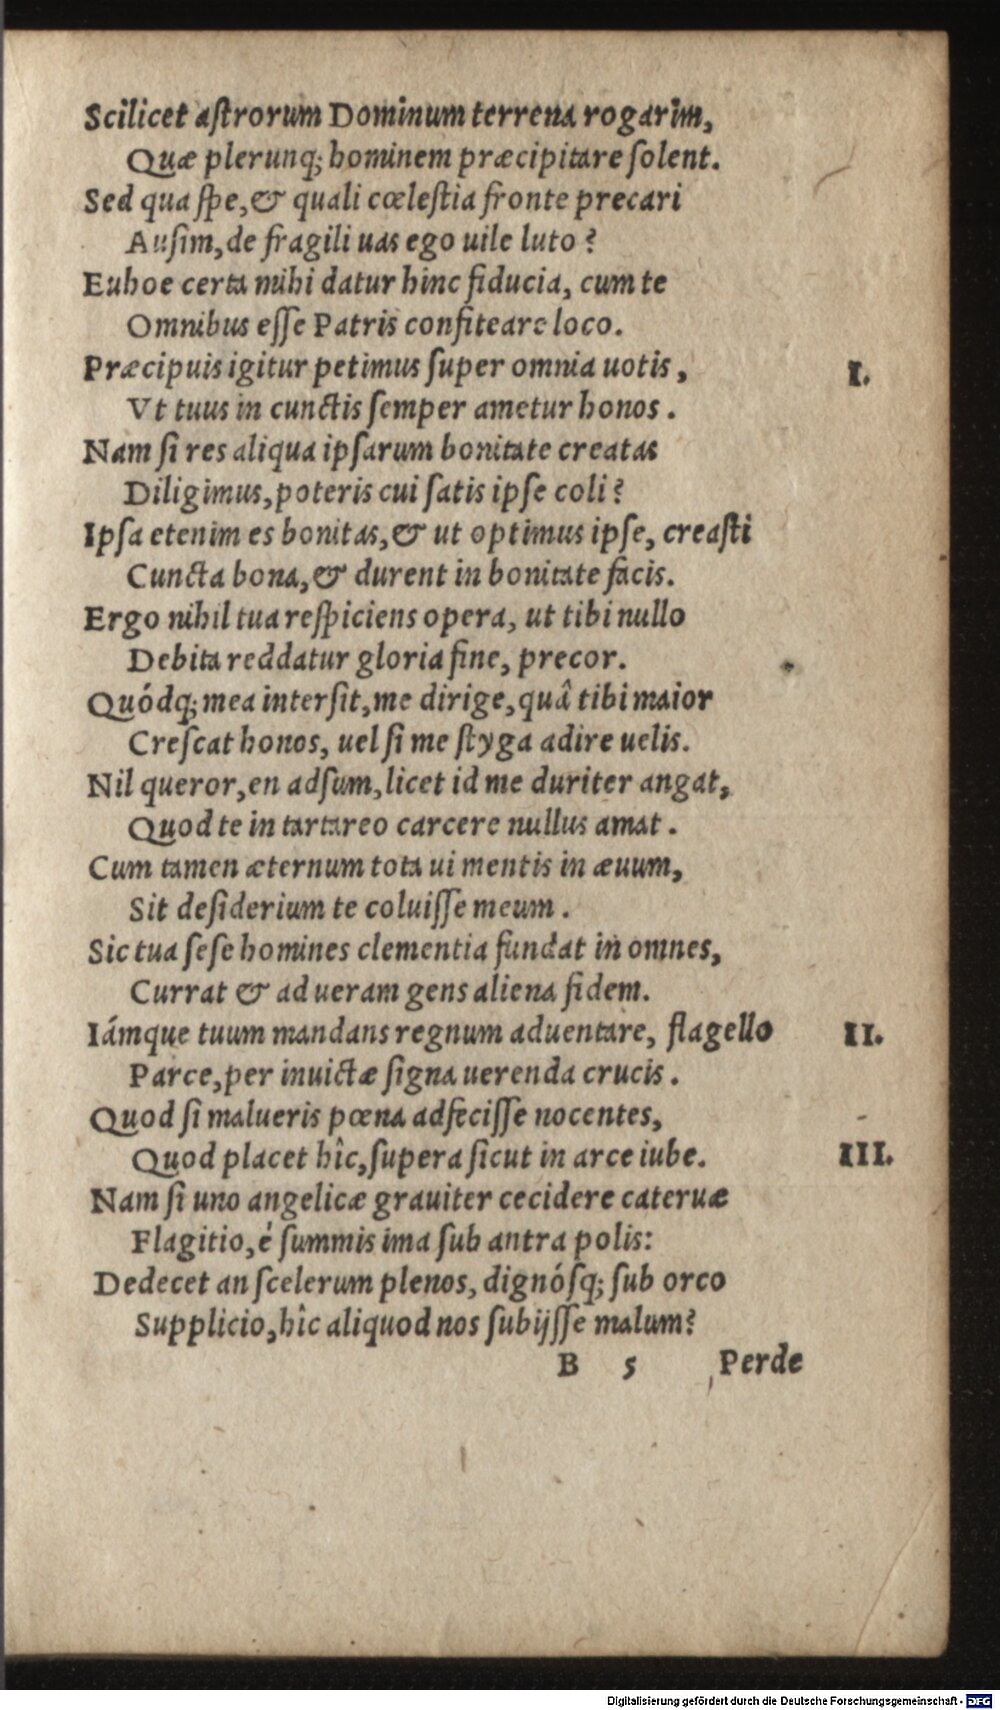 Scilicet aſtrorum Dominum terrena rogarim,
Quæ plerunq; hominem præcipitare ſolent.
Sed qua ſpe, & quali cœleſtia fronte precari
Auſim, de fragili uas ego uile luto?
Euhoe certa mihi datur hinc fiducia, cum te
Omnibus eſſe Patris confiteare loco.
Præcipuis igitur petimus ſuper omnia uotis, I.
Vt tuus in cunctis ſemper ametur honos.
Nam ſi res aliqua ipſarum bonitate creatas
Diligimus, poteris cui ſatis ipſe coli?
Ipſa etenim es bonitas, & ut optimus ipſe, creaſti
Cuncta bona, & durent in bonitate facis.
Ergo nihil tua reſpiciens opera, ut tibi nullo
Debita reddatur gloria fine, precor.
Quódq; mea interſit, me dirige, quâ tibi maior
Creſcat honos, uel ſi me ſtyga adire uelis.
Nil queror, en adſum, licet id me duriter angat,
Quod te in tartareo carcere nullus amat.
Cum tamen æternum tota ui mentis in æuum,
Sit deſiderium te coluiſſe meum.
Sic tua ſeſe homines clementia fundat in omnes,
Currat & ad ueram gens aliena fidem.
Iámque tuum mandans regnum aduentare, flagello II.
Parce, per inuictæ ſigna uerenda crucis.
Quod ſi malueris pœna adfeciſſe nocentes,
Quod placet hîc, ſupera ſicut in arce iube. III.
Nam ſi uno angelicæ grauiter cecidere cateruæ
Flagitio, é ſummis ima ſub antra polis:
Dedecet an ſcelerum plenos, dignóſq; ſub orco
Supplicio, hîc aliquod nos ſubijſſe malum?
B 5 Perde
Digitalisierung gefördert durch die Deutsche Forschungsgemeinschaft - DFG